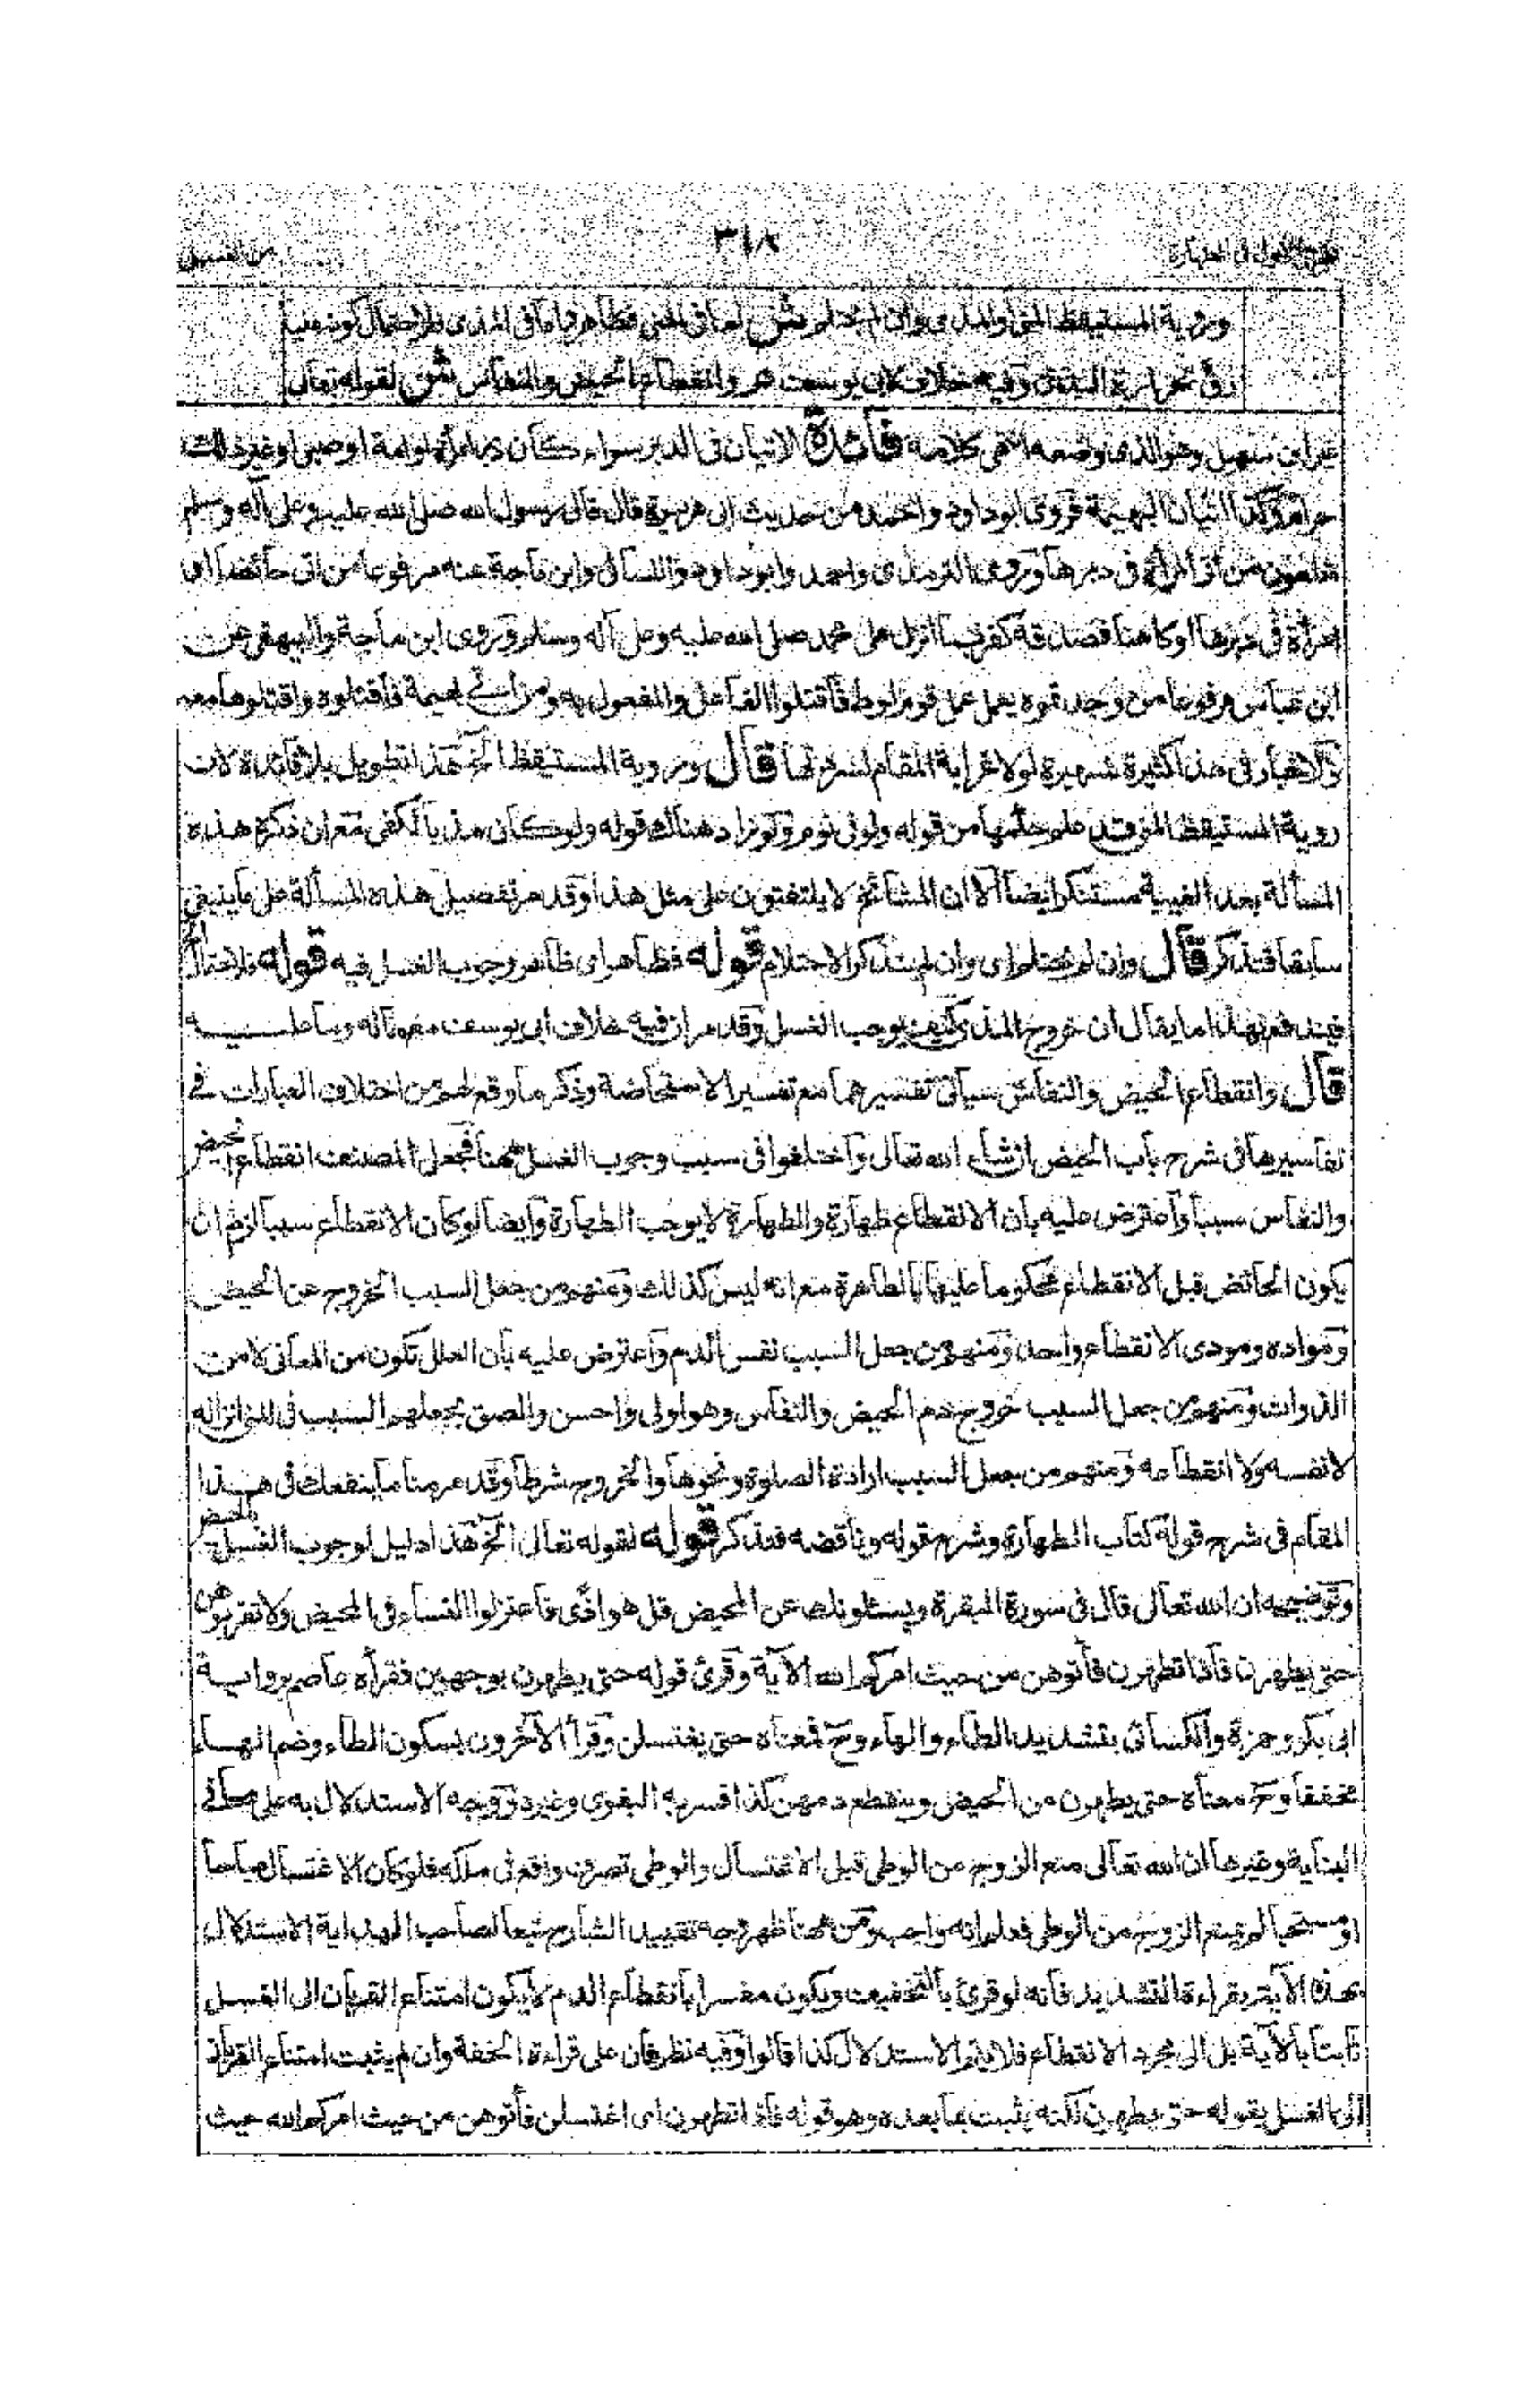 ٣١٨
ورؤية المستيقظ المني او المذي وان لم يحتلم ش اما في المني فظاهر واما في المذي فلاحتمال كونه منيا
رق بحرارة البدن وفيه خلاف لابي يوسف م وانقطاع الحيض والنفاس ش لقوله تعالى
غير ابن سهيل وهو الذي وضعه انتهى كلامه فائدة الاتيان في الدبر سواء كان دبر امرأة او امة او صبي او غير ذلك
حرام وكذا اتيان البهيمة فروى ابو داود واحمد من حديث ابي هريرة قال قال رسول الله صلى الله عليه وعلى آله وسلم
ملعون من اتى امرأة في دبرها وروى الترمذي واحمد وابو داود والنسائي وابن ماجة عنه مرفوعا من اتى حائضا او
امرأة في دبرها او كاهنا فصدقه كفر بما انزل على محمد صلى الله عليه وعلى آله وسلم وروى ابن ماجة والبيهقي عن
ابن عباس مرفوعا من وجدتموه يعمل عمل قوم لوط فاقتلوا الفاعل والمفعول به ومن اتى بهيمة فاقتلوه واقتلوها معه
والاخبار في هذا كثيرة شهيرة لولا غرابة المقام لسردتها قال ورؤية المستيقظ الخ هذا تطويل بلا فائدة لان
روية المستيقظ المني قد علم حكمها من قوله ولو في نوم ولو زاد هناك قوله ولو كان مذيا لكفى مع ان ذكره هذه
المسألة بعد الغيبة مستنكر ايضا الا ان المشائخ لا يلتفتون على مثل هذا وقد مر تفصيل هذه المسألة على ما ينبغي
سابقا فتذكر قال وان لم يحتلم اي وان لم يتذكر الاحتلام قوله فظاهر اي ظاهر وجوب الغسل فيه قوله فلاحتمال الخ
فيندفع بهذا ما يقال ان خروج المذي كيف يوجب الغسل وقد مر ان فيه خلاف ابي يوسف مع ماله وما عليه
قال وانقطاع الحيض والنفاس سيأتي تفسيرهما مع تفسير الاستحاضة وذكر ما وقع لهم من اختلاف العبارات في
تفاسيرها في شرح باب الحيض انشاء الله تعالى واختلفوا في سبب وجوب الغسل ههنا فجعل المصنف انقطاع الحيض
والنفاس سببا واعترض عليه بان الانقطاع طهارة والطهارة لا يوجب الطهارة وايضا لو كان الانقطاع سببا لزم ان
يكون الحائض قبل الانقطاع محكوما عليها بالطاهرة مع انه ليس كذلك ومنهم من جعل السبب الخروج عن الحيض
ومواده ومودى الانقطاع واحد ومنهم من جعل السبب نفس الدم واعترض عليه بان العلل تكون من المعاني لا من
الذوات ومنهم من جعل السبب خروج دم الحيض والنفاس وهو اولى واحسن والصق بجعلهم السبب في المني انزاله
لا نفسه ولا انقطاعه ومنهم من جعل السبب ارادة الصلوة ونحوها والخروج شرطا وقد مر منا ما ينفعك في هذا
المقام في شرح قوله كتاب الطهارة وشرح قوله وناقضه فتذكر قوله لقوله تعالى الخ هذا دليل لوجوب الغسل بالحيض
وتوضيحه ان الله تعالى قال في سورة البقرة ويسئلونك عن المحيض قل هو اذى فاعتزلوا النساء في المحيض ولا تقربوهن
حتى يطهرن فاذا تطهرن فأتوهن من حيث امركم الله الآية وقرئ قوله حتى يطهرن بوجهين فقرأه عاصم برواية
ابي بكر وحمزة والكسائي بتشديد الطاء والهاء وح فمعناه حتى يغتسلن وقرأ الآخرون بسكون الطاء وضم الهاء
مخففا وح معناه حتى يطهرن من الحيض وينقطع دمهن كذا فسر به البغوي وغيره ووجه الاستدلال به على ما في
البناية وغيرها ان الله تعالى منع الزوج من الوطي قبل الاغتسال والوطي تصرف واقع في ملكه فلو كان الاغتسال مباحا
او مستحبا لم يمنع الزوج من الوطي فعلم انه واجب ومن ههنا ظهر وجه تقييد الشارح تبعا لصاحب الهداية الاستدلال
بهذه الآية بقراءة التشديد فانه لو قرئ بالتخفيف ويكون مفسرا بانقطاع الدم لا يكون امتناع القربان الى الغسل
ثابتا بالآية بل الى مجرد الانقطاع فلا يتم الاستدلال كذا قالوا وفيه نظر فان على قراءة الخفة وان لم يثبت امتناع القربان
الى الغسل بقوله حتى يطهرن لكنه يثبت بما بعده وهو قوله فاذا تطهرن اى اغتسلن فأتوهن من حيث امركم الله حيث